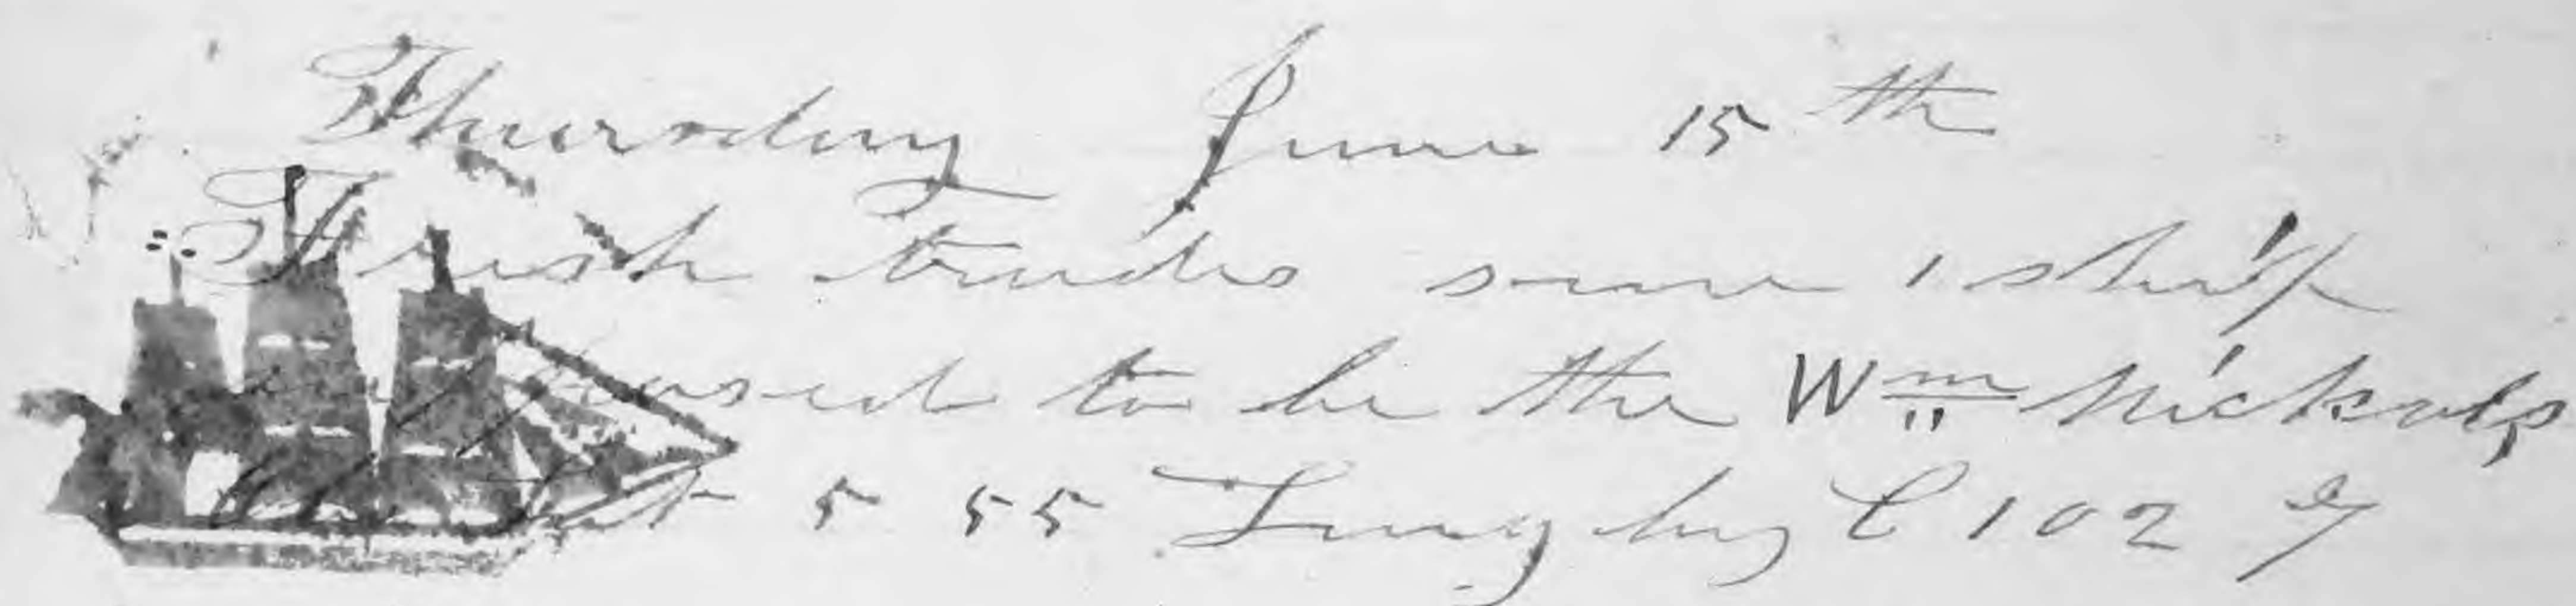 Thursday June 15th
Fresh trades saw 1 ship
supposed to be the Wm Nickols
Obs Lat 5 55 Long by C 102 27